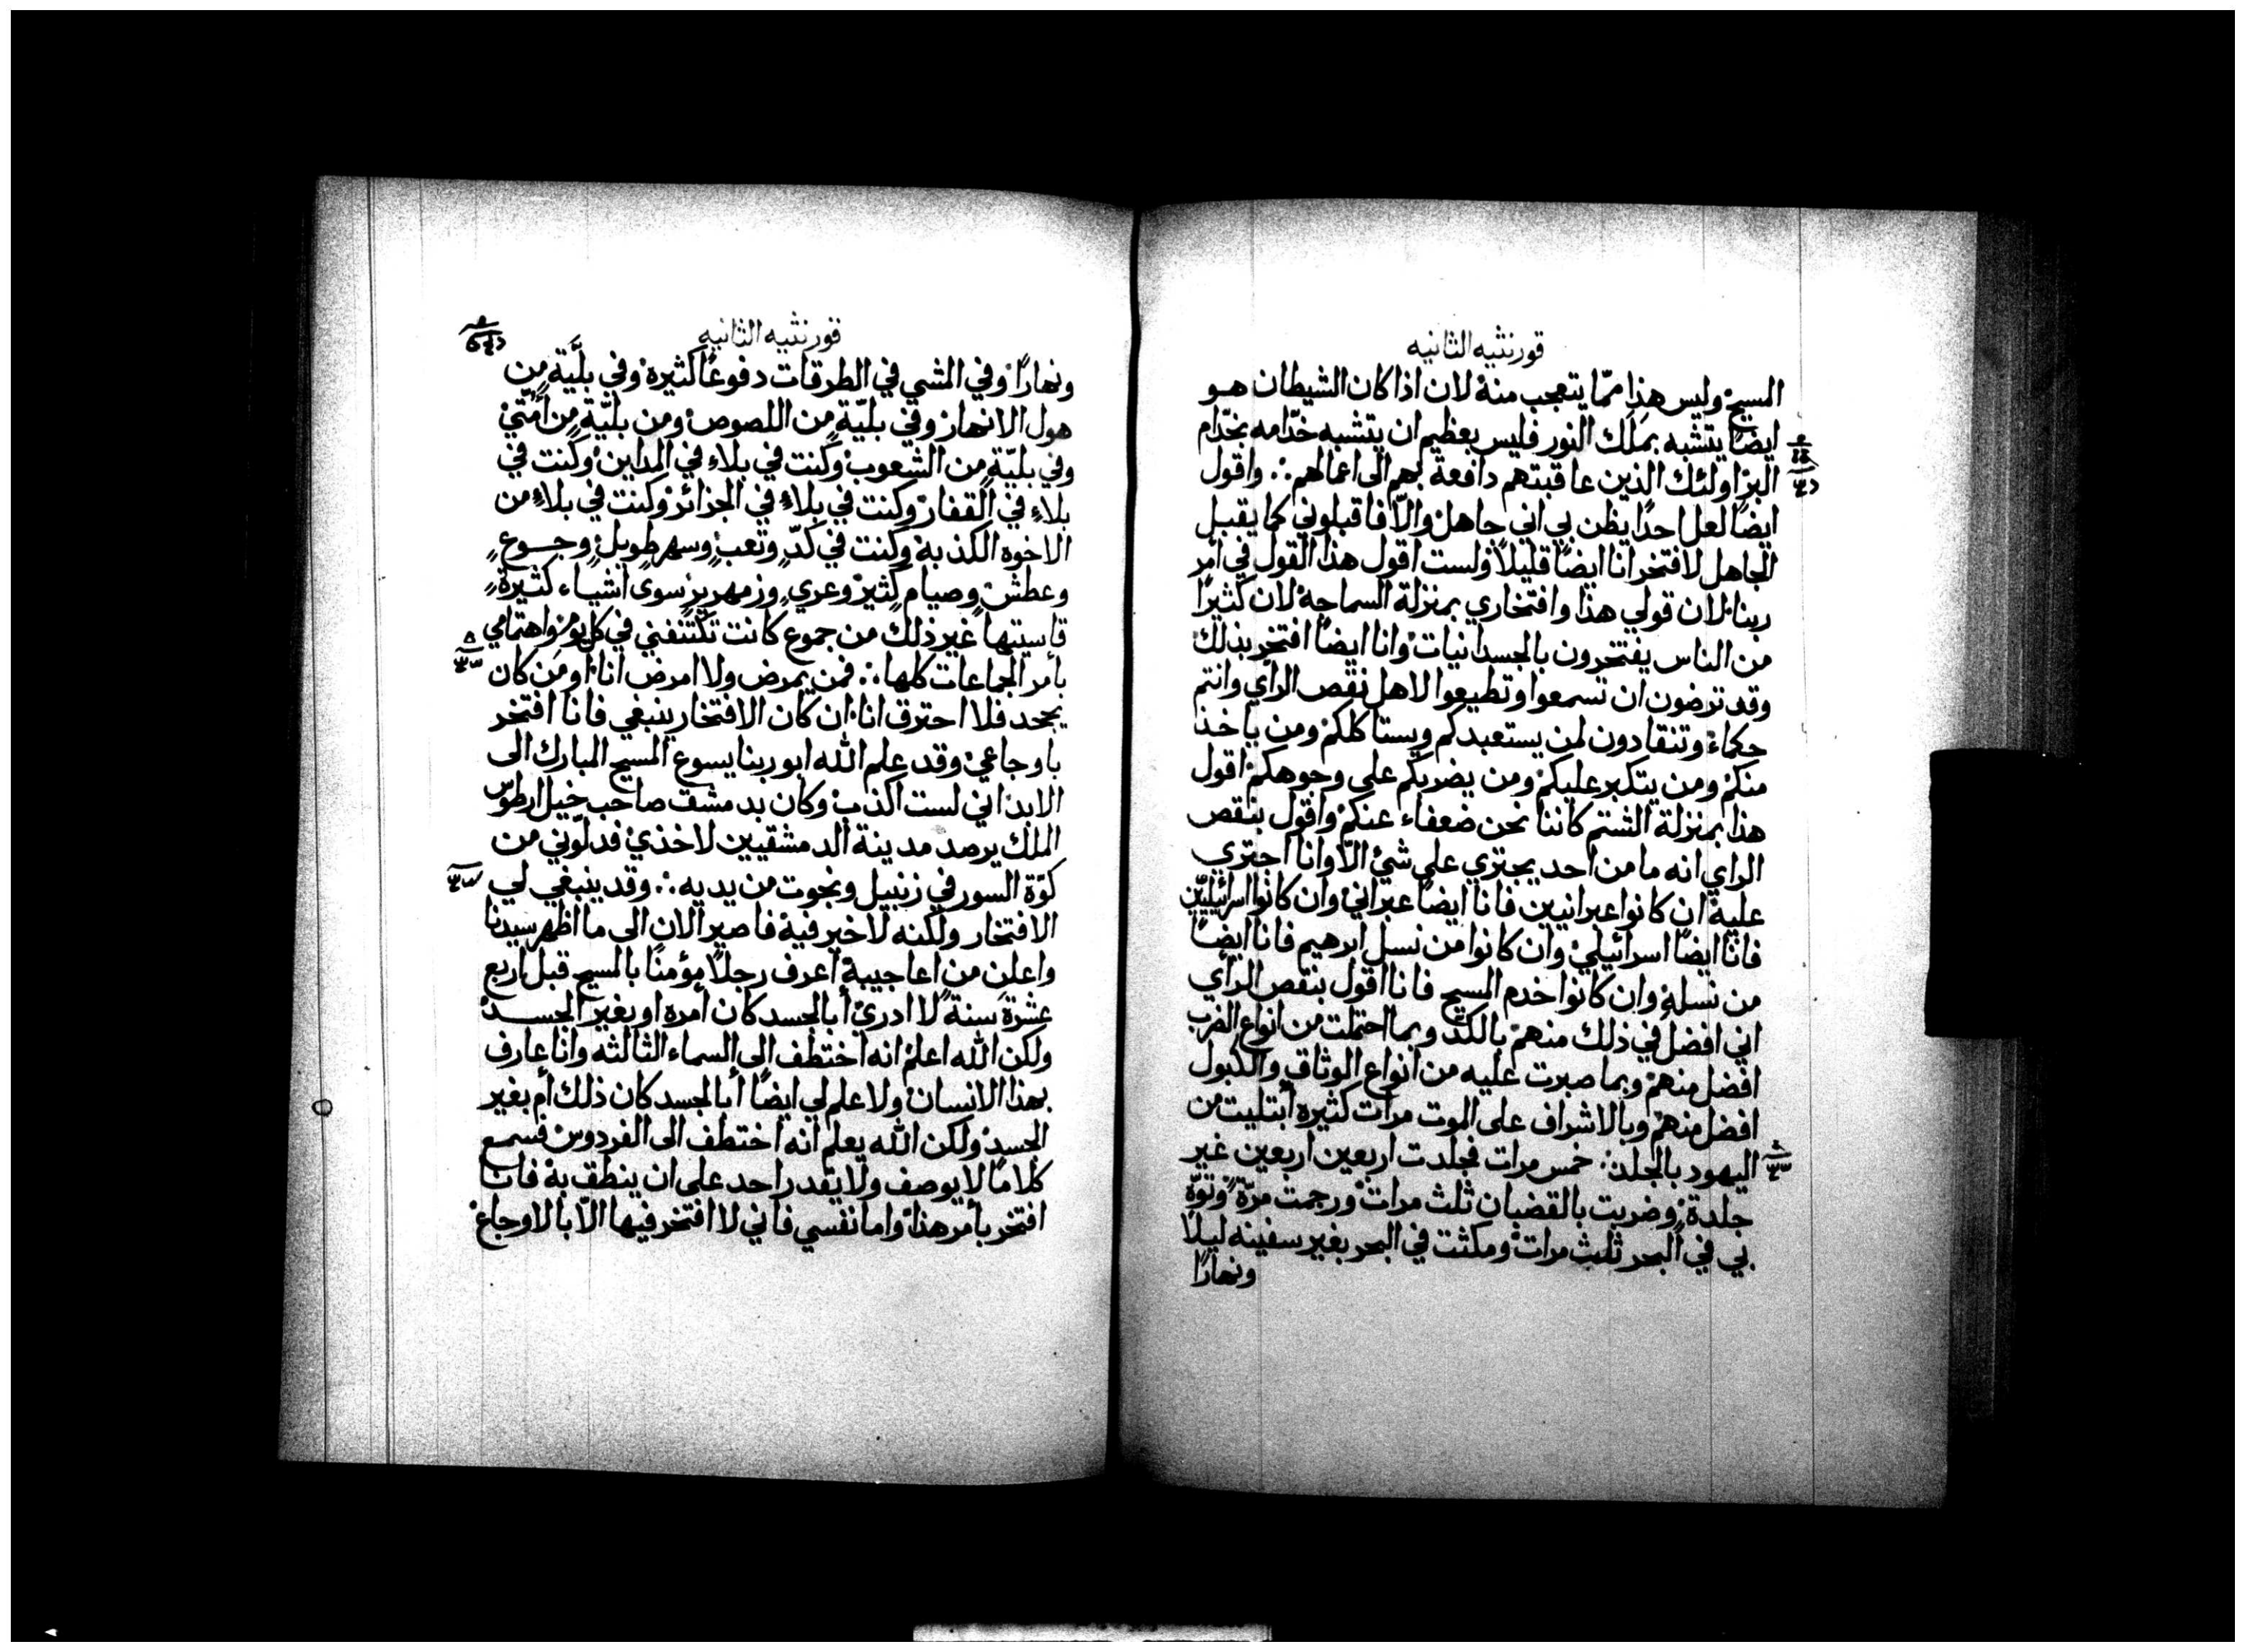 قورنثيه الثانيه
المسيح وليس هذا ممّا يتعجب منه لان اذا كان الشيطان هو
ايضًا يتشبه بملك النور فليس بعظيم ان يتشبه خدّامه بخدّام
البر اولئك الذين عاقبتهم دافعة بهم الى اعمالهم ∴ واقول
ايضًا لعل احدًا يظن بي اني جاهل والّا فاقبلوني كما يقبل
الجاهل لافتخر انا ايضًا قليلًا ولست اقول هذا القول في امر
ربنا لان قولي هذا وافتخاري بمنزلة السماجة لان كثيرًا
من الناس يفتخرون بالجسدانيات وانا ايضًا افتخر بذلك
وقد ترضون ان تسمعوا وتطيعوا لاهل نقص الرأي وانتم
حكماء وتنقادون لمن يستعبدكم ويستاكلكم ومن ياخذ
منكم ومن يتكبر عليكم ومن يضربكم على وجوهكم اقول
هذا بمنزلة الشتم كاننا نحن ضعفاء عنكم واقول بنقص
الراي انه ما من احد يجتري على شئ الّا وانا اجتري
عليه ان كانوا عبرانيين فانا ايضًا عبراني وان كانوا اسرائيليّين
فانا ايضًا اسرائيلي وان كانوا من نسل ابرهيم فانا ايضًا
من نسله وان كانوا خدم المسيح فانا اقول بنقص الرأي
اني افضل في ذلك منهم بالكد وبما احتملت من انواع الضرب
افضل منهم وبما صبرت عليه من انواع الوثاق والكبول
افضل منهم وبالاشراف على الموت مرات كثيرة ابتليت من
اليهود بالجلد خمس مرات فجلدت اربعين اربعين غير
جلدة وضربت بالقضبان ثلث مرات ورجمت مرّة وتوّه
بي في البحر ثلث مرات ومكثت في البحر بغير سفينه ليلًا
ونهارًا
قورنثيه الثانيه
ونهارًا وفي المشي في الطرقات دفوعًا كثيرة وفي بليَّة من
هول الانهار وفي بليّة من اللصوص ومن بليّة من أمّتي
وفي بليّة من الشعوب وكنت في بلاء في المداين وكنت في
بلاء في القفار وكنت في بلاء في الجزائر وكنت في بلاء من
الاخوه الكذبة وكنت في كدّ وتعب وسهر طويل وجوع
وعطش وصيام كثير وعري وزمهرير سوى اشياء كثيرة
قاسيتها غير ذلك من جموع كانت تكتنفني في كل يوم واهتمامي
بأمر الجماعات كلها ∴ فمن يمرض ولا امرض انا او من كان
يجحد فلا احترق انا ان كان الافتخار ينبغي فانا افتخر
باوجاعي وقد علم الله ابو ربنا يسوع المسيح المبارك الى
الابد اني لست اكذب وكان بدمشق صاحب خيل ارطوس
الملك يرصد مدينة الدمشقيين لاخذي فدلّوني من
كوّة السور في زنبيل ونجوت من يديه ∴ وقد ينبغي لي
الافتخار ولكنه لا خير فيه فاصير الان الى ما اظهر سيدنا
واعلن من اعاجيبه اعرف رجلًا مؤمنًا بالمسيح قبل اربع
عشرة سنة لا ادري أبالجسد كان أمره او بغير الجسد
ولكن الله اعلم انه اختطف الى السماء الثالثه وانا عارف
بهذا الانسان ولا علم لي ايضًا أبالجسد كان ذلك أم بغير
الجسد ولكن الله يعلم انه اختطف الى الفردوس فسمع
كلامًا لا يوصف ولا يقدر احد على ان ينطق به فانا
افتخر بأمر هذا واما نفسي فاني لا افتخر فيها الّا بالاوجاع